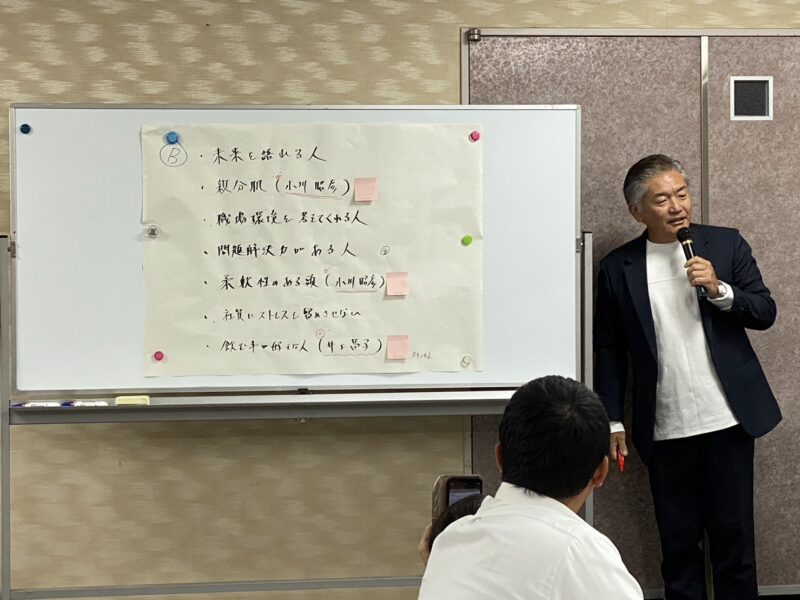 B
・未来を語れる人
・親分肌(小川 昭彦)
・職場環境を考えてくれる人
・問題解決力がある人
・柔軟性のある頭(小川 昭彦)
・社員にストレスを感じさせない
・飲む事が好きな人